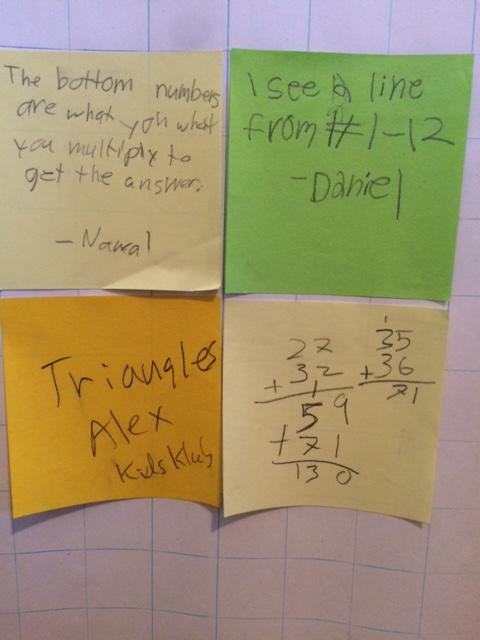 The bottom numbers
are what you what
you multiply to
get the answer.
- Nawal
I see A line
from #1-12
-Daniel
Triangles
Alex
Kids Klub
27
+ 32
1
59
+ 71
130
1
35
+ 36
71